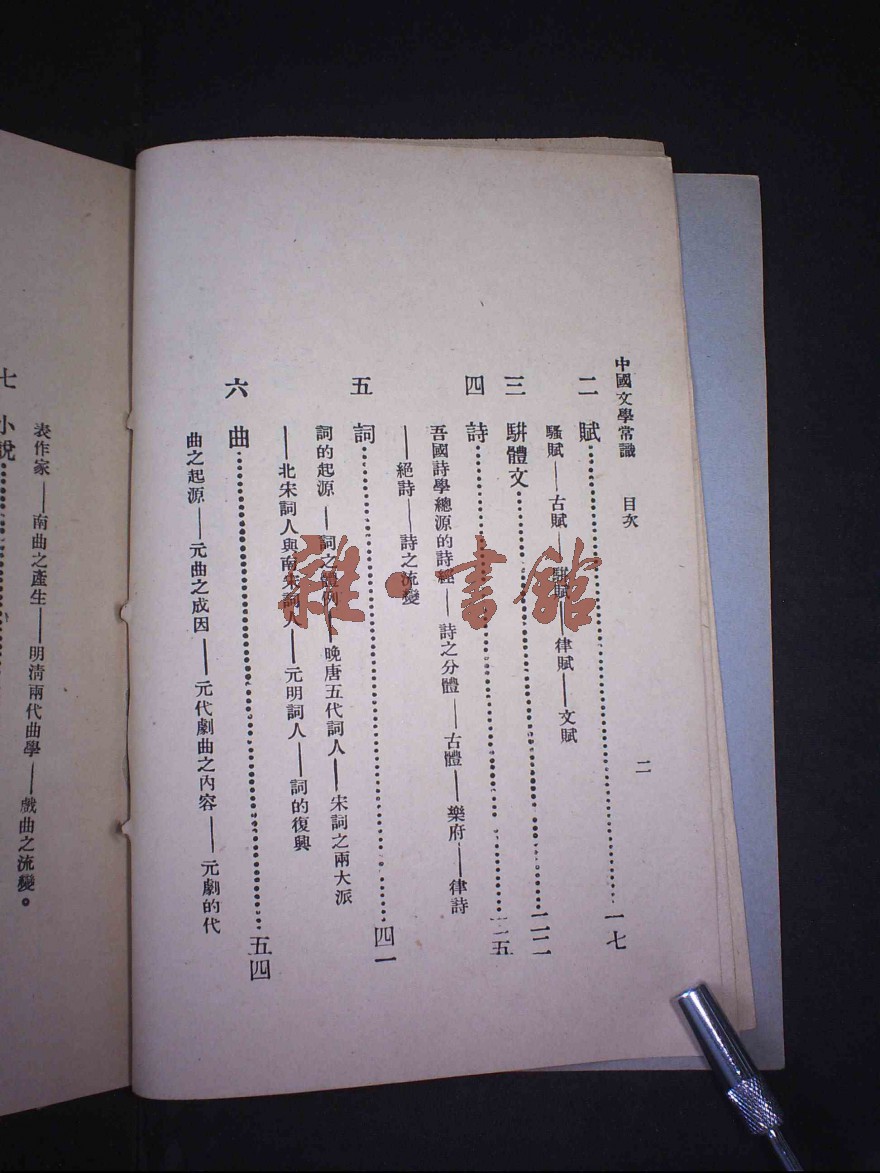 中國文學常識　目次　二
二　賦……一七
騷賦——古賦——駢賦——律賦——文賦
三　駢體文……二二
四　詩……二五
吾國詩學總源的詩經——詩之分體——古體——樂府——律詩
——絕詩——詩之流變
五　詞……四一
詞的起源——詞之體例——晚唐五代詞人——宋詞之兩大派
——北宋詞人與南宋詞人——元明詞人——詞的復興
六　曲……五四
曲之起源——元曲之成因——元代劇曲之內容——元劇的代
表作家——南曲之產生——明清兩代曲學——戲曲之流變。
七　小說……
雜·書館